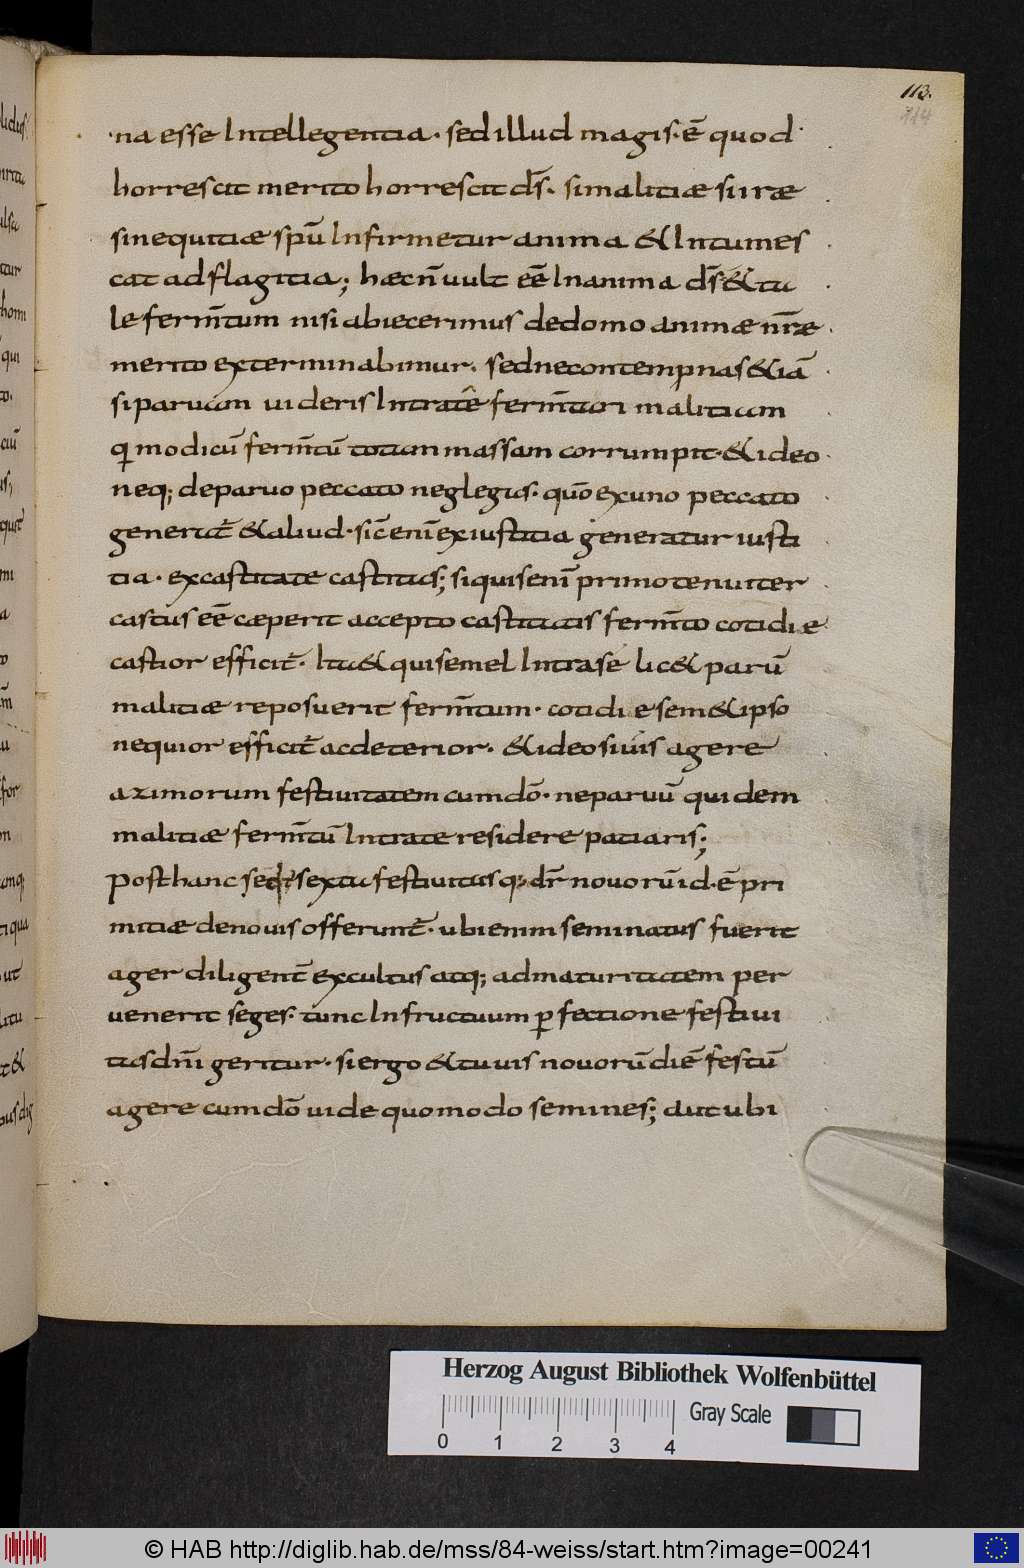 113.
114
na esse Intellegentia · sed illud magis · ē quod
horrescit merito horrescit d̄s · si malitiæ si iræ
si nequitiæ sp̄u Infirmetur anima & Intumes
cat ad flagitia; hæc n̄ vult eē In anima d̄s · & tu
le ferm̄tum nisi abiecerimus de domo animæ nr̄æ
merito exterminabimur. sed ne contempnas &iā
si paruam uideris Intra tē ferm̄tari malitiam
q modicū ferm̄tū totam massam corrumpit · & ideo
neq; de paruo peccato neglegas · quō ex uno peccato
generat̄ & aliud · sic̄ enī ex iustitia generatur iusti
tia · ex castitate castitas; si quis enī primo tenuiter
castus eē cæperit accepto castitatis ferm̄to cotidie
castior efficit̄ · Ita & qui semel Intra se lic& parū
malitiæ reposuerit ferm̄tum · cotidie sem&ipso
nequior efficit̄ ac deterior · & ideo si uis agere
azimorum festiuitatem cum dō · ne paruū quidem
malitiæ ferm̄tū Intra te residere patiaris;
Post hanc seqt̄ sexta festiuitas q; dr̄ nouorū id · ē pri
mitiæ de nouis offerunt̄ · ubi enim seminatus fuerit
ager diligent̄ excultus atq; ad maturitatem per
uenerit seges · tunc In fructuum p fectione festiui
tas dn̄i geritur · si ergo & tu uis nouorū diē festū
agere cum dō uide quomodo semines; aut ubi
Herzog August Bibliothek Wolfenbüttel
Gray Scale
0 1 2 3 4
© HAB http://diglib.hab.de/mss/84-weiss/start.htm?image=00241